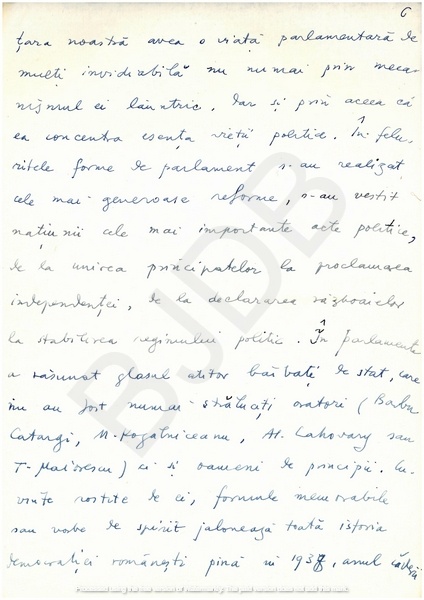 6
țara noastră avea o viață parlamentară de
mulți invidiabilă nu numai prin meca-
nismul ei lăuntric, dar și prin aceea că
ea concentra esența vieții politice. În felu-
ritele forme de parlament s-au realizat
cele mai generoase reforme, s-au vestit
națiunii cele mai importante acte politice,
de la unirea principatelor la proclamarea
independenței, de la declararea războaielor
la stabilirea regimului politic. În parlamente
a răsunat glasul atîtor bărbați de stat, care
nu au fost numai străluciți oratori (Barbu
Catargi, M. Kogălniceanu, Al. Lahovary sau
T. Maiorescu) ci și oameni de principii. Cu-
vinte rostite de ei, formule memorabile
sau vorbe de spirit jalonează toată istoria
democrației românești pînă în 1938, anul căderii
BJDB